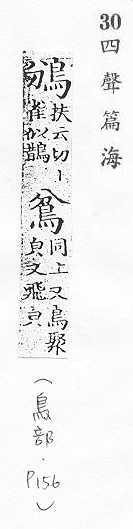 30 四聲篇海
鳻 扶云切丨
雀似鶡
同上又鳥聚
皃又飛皃
(鳥部.P156)